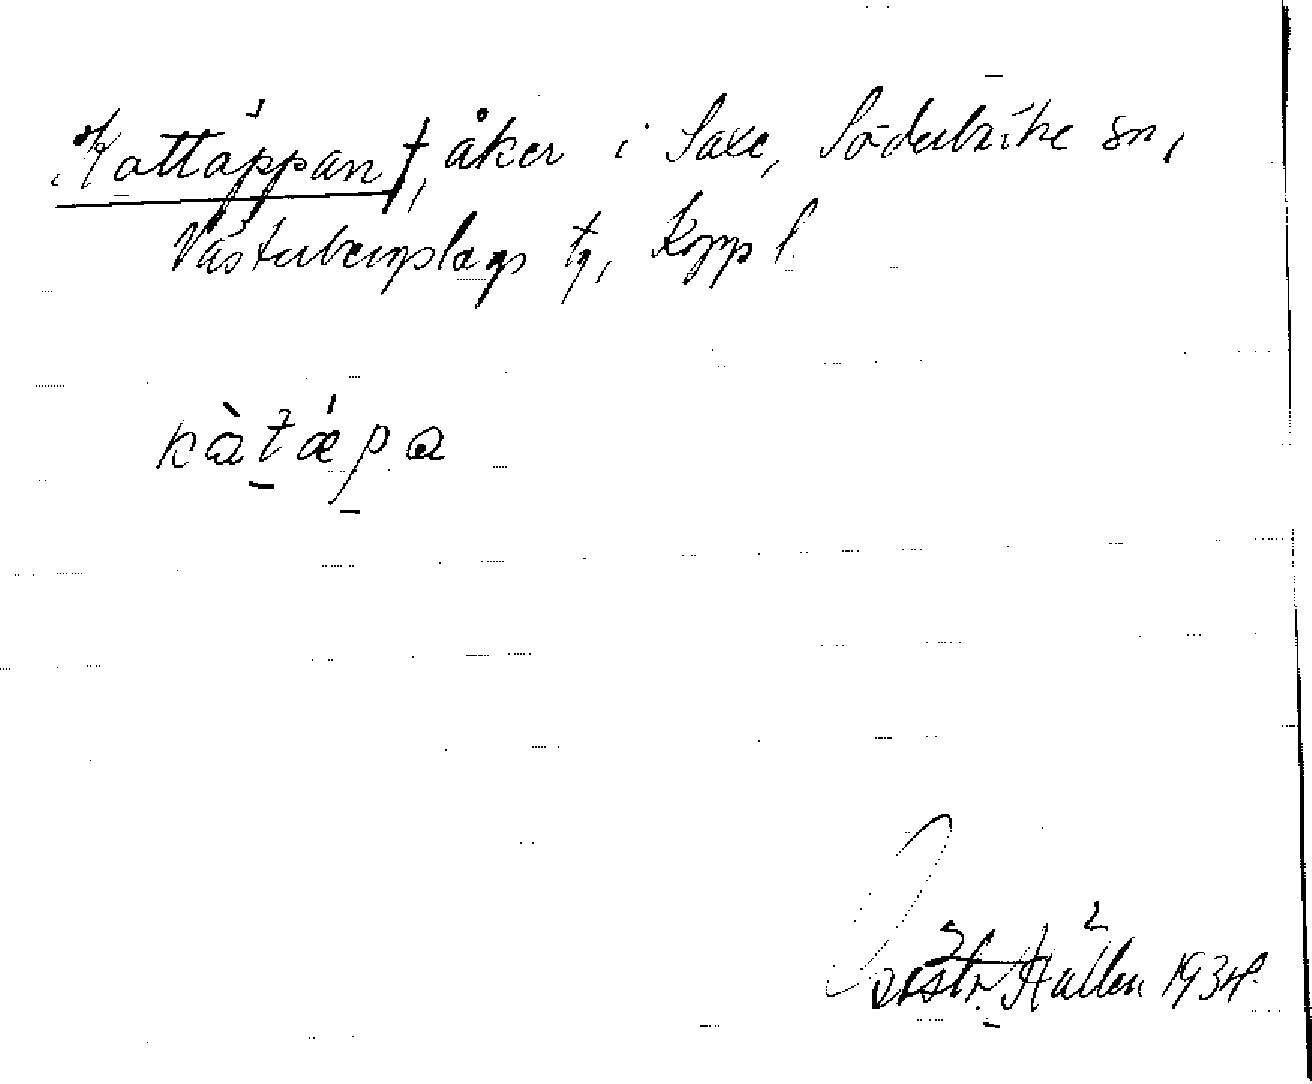 Kattäppan †, åker i Saxe, Söderbärke sn,
Västerbergslags tg, Kopp l.
kàtǽpa
Västr. Hällen 1934.